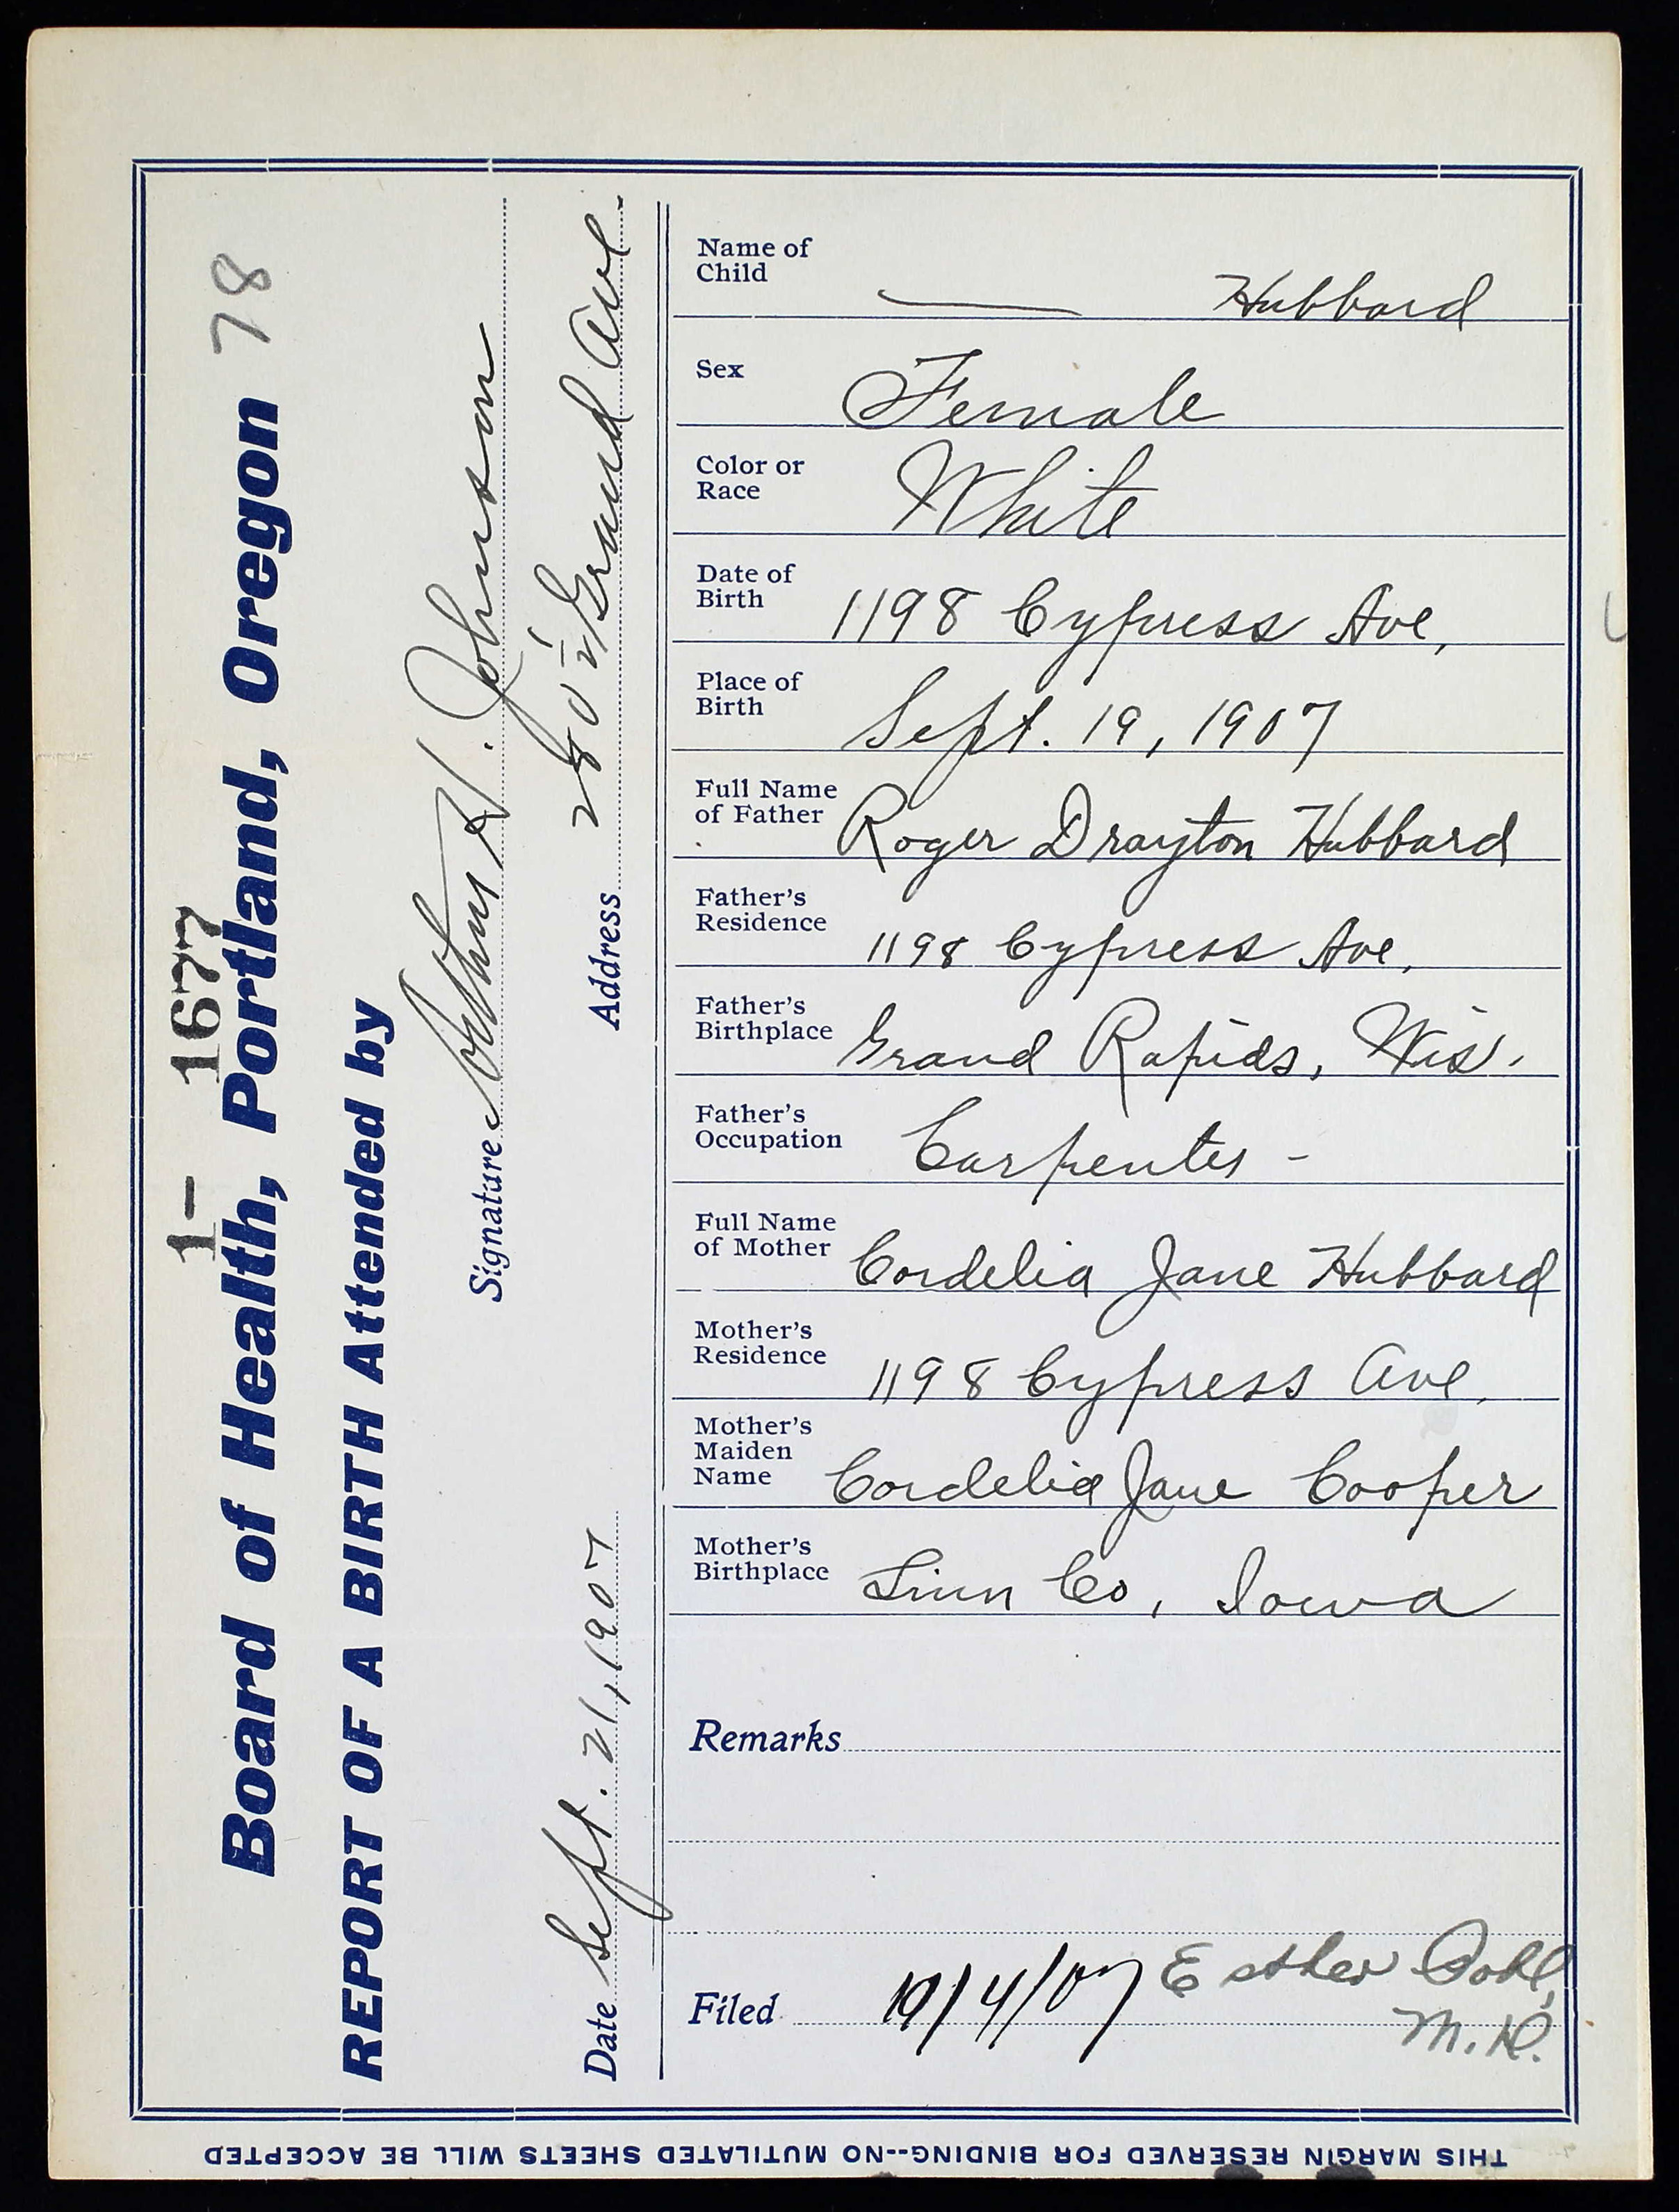 1- 1677
Board of Health, Portland, Oregon 78
REPORT OF A BIRTH Attended by
Signature Arthur H. Johnson
Date Sept. 21, 1907 Address 280 1/2 Grand Ave.
Name of Child ——— Hubbard
Sex Female
Color or Race White
Date of Birth 1198 Cypress Ave,
Place of Birth Sept. 19, 1907
Full Name of Father Roger Drayton Hubbard
Father's Residence 1198 Cypress Ave,
Father's Birthplace Grand Rapids, Wis.
Father's Occupation Carpenter -
Full Name of Mother Cordelia Jane Hubbard
Mother's Residence 1198 Cypress Ave,
Mother's Maiden Name Cordelia Jane Cooper
Mother's Birthplace Linn Co, Iowa
Remarks
Filed 10/4/07 Esther Pohl,
M.D.
THIS MARGIN RESERVED FOR BINDING--NO MUTILATED SHEETS WILL BE ACCEPTED